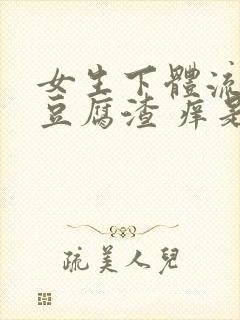 女生下體流
豆腐渣 痒是
疏美人兒